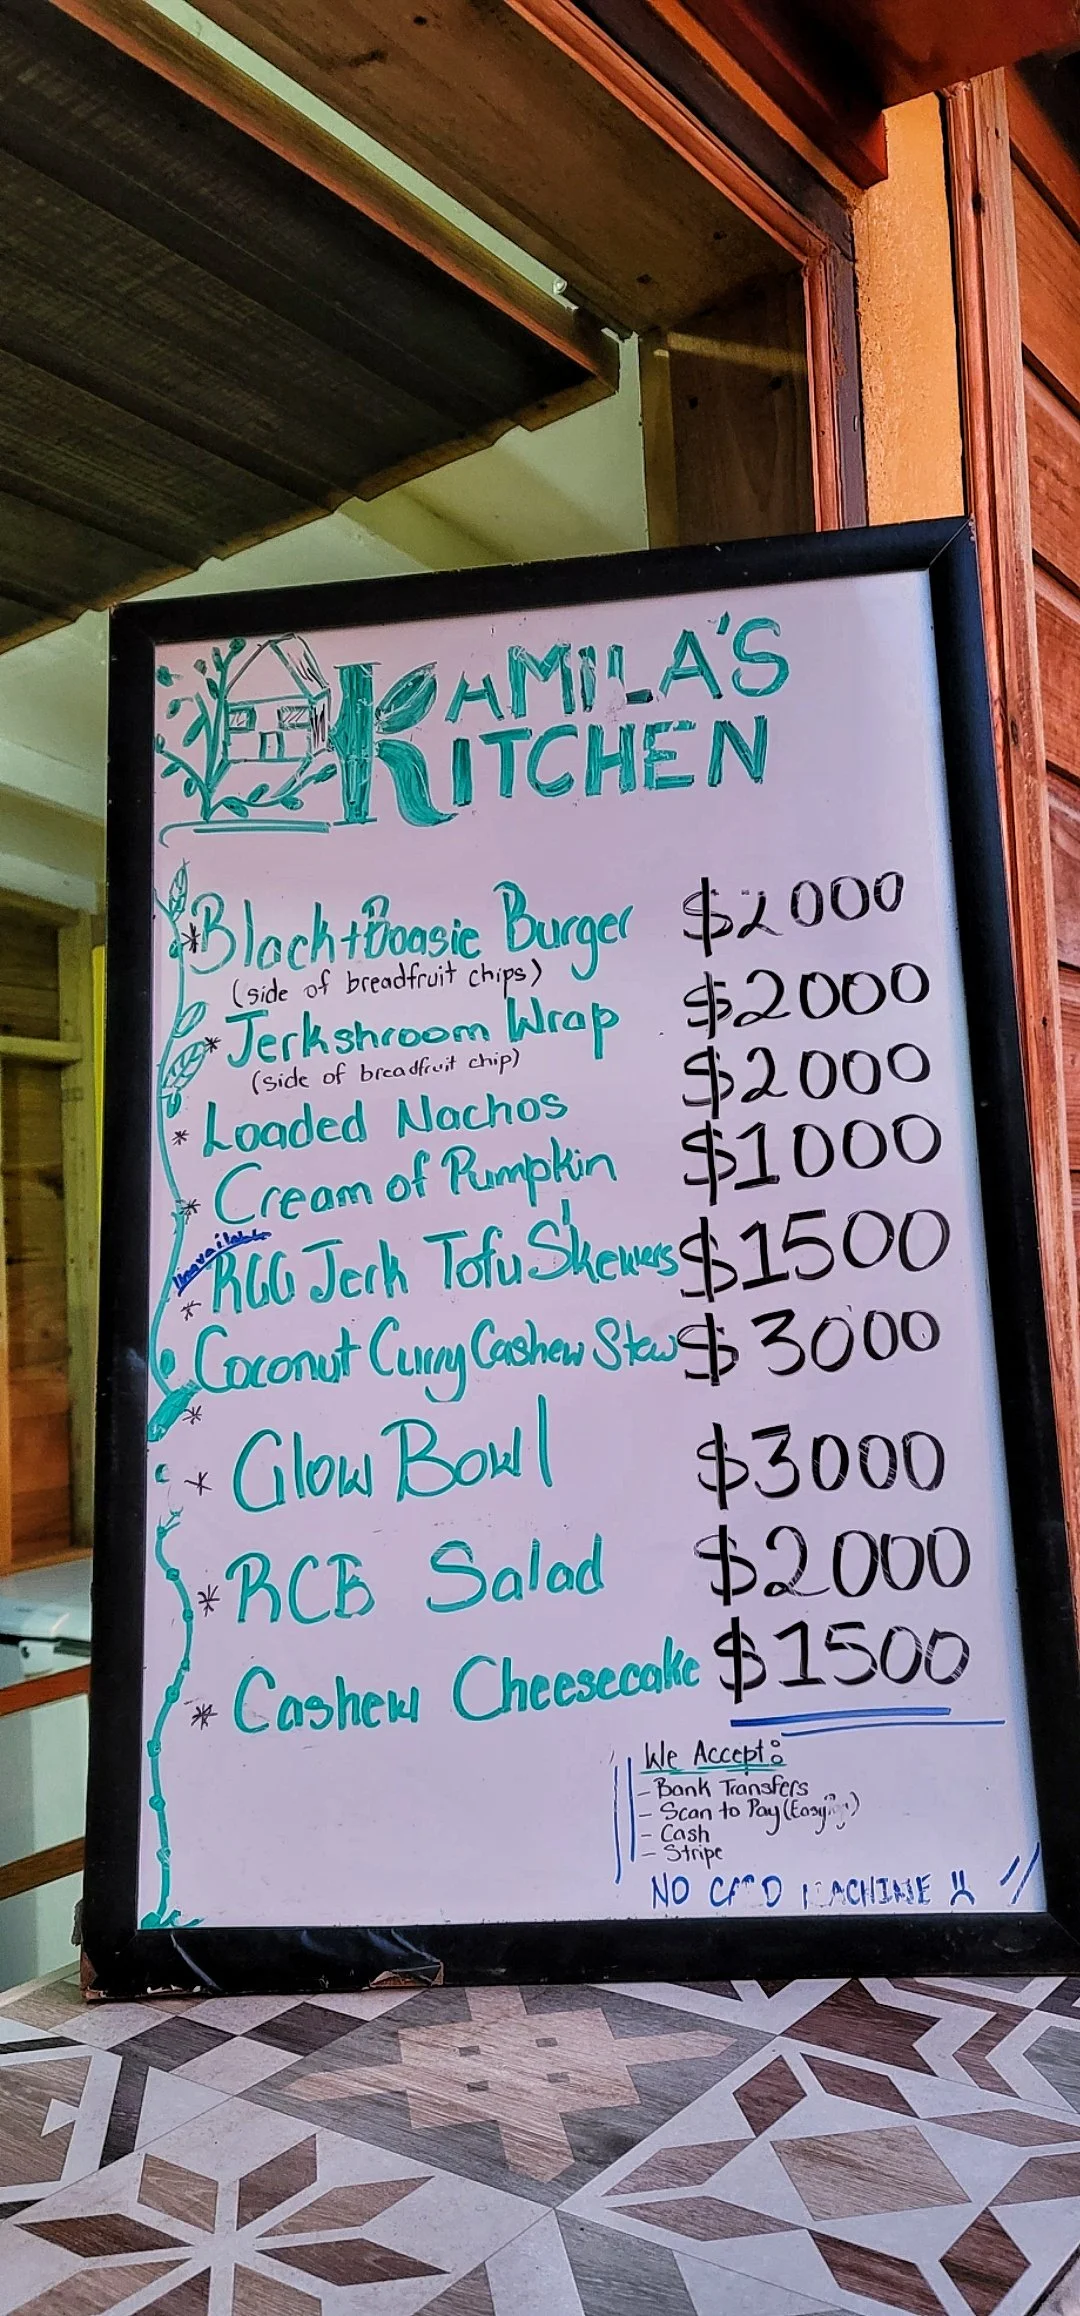 KAMILA'S
KITCHEN
* Black+Boasie Burger $2000
(side of breadfruit chips)
* Jerkshroom Wrap $2000
(side of breadfruit chip)
* Loaded Nachos $2000
* Cream of Pumpkin $1000
Unavailable
* RGG Jerk Tofu Skewers $1500
* Coconut Curry Cashew Stew $3000
* Glow Bowl $3000
* RCB Salad $2000
* Cashew Cheesecake $1500
We Accept:
- Bank Transfers
- Scan to Pay
- Cash
- Stripe
NO CARD MACHINE